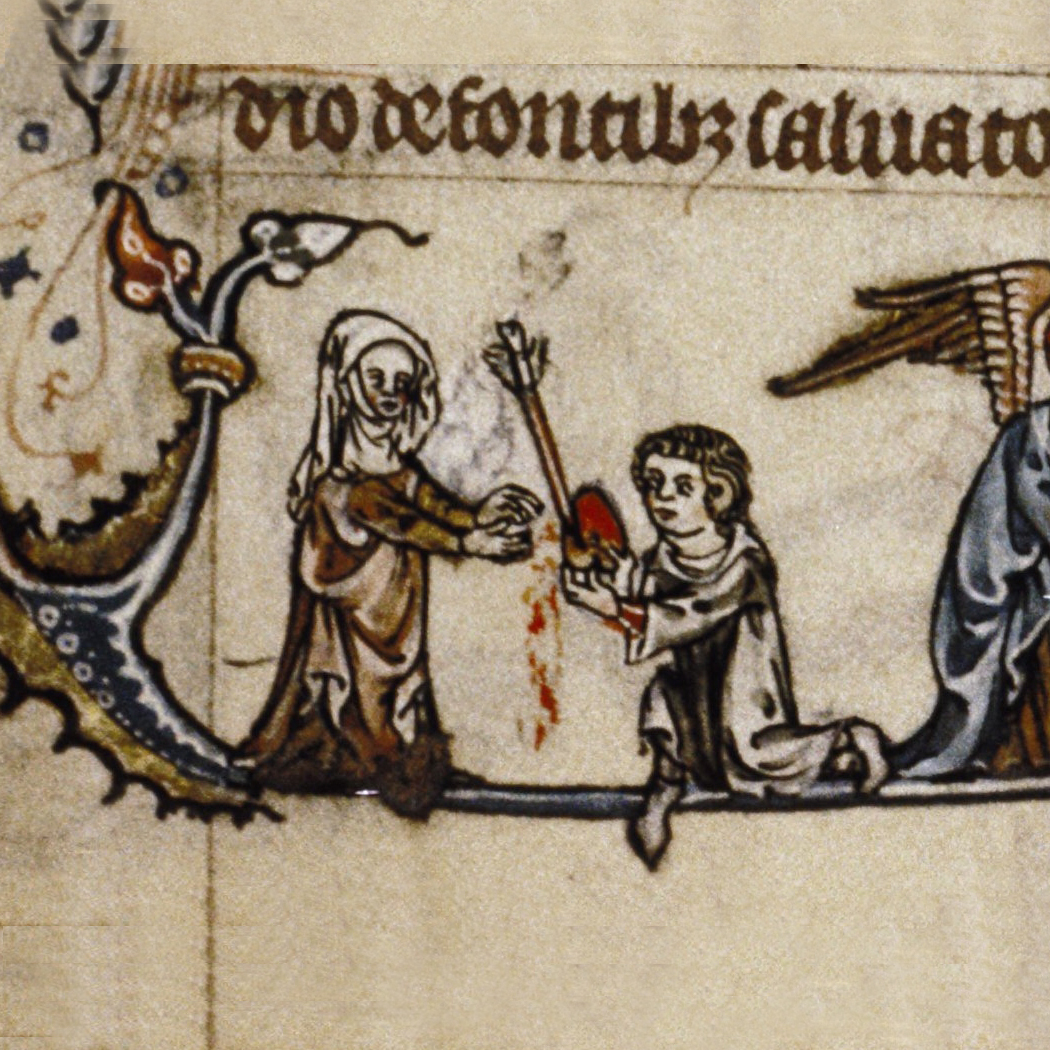 dio de fontibꝫ saluato